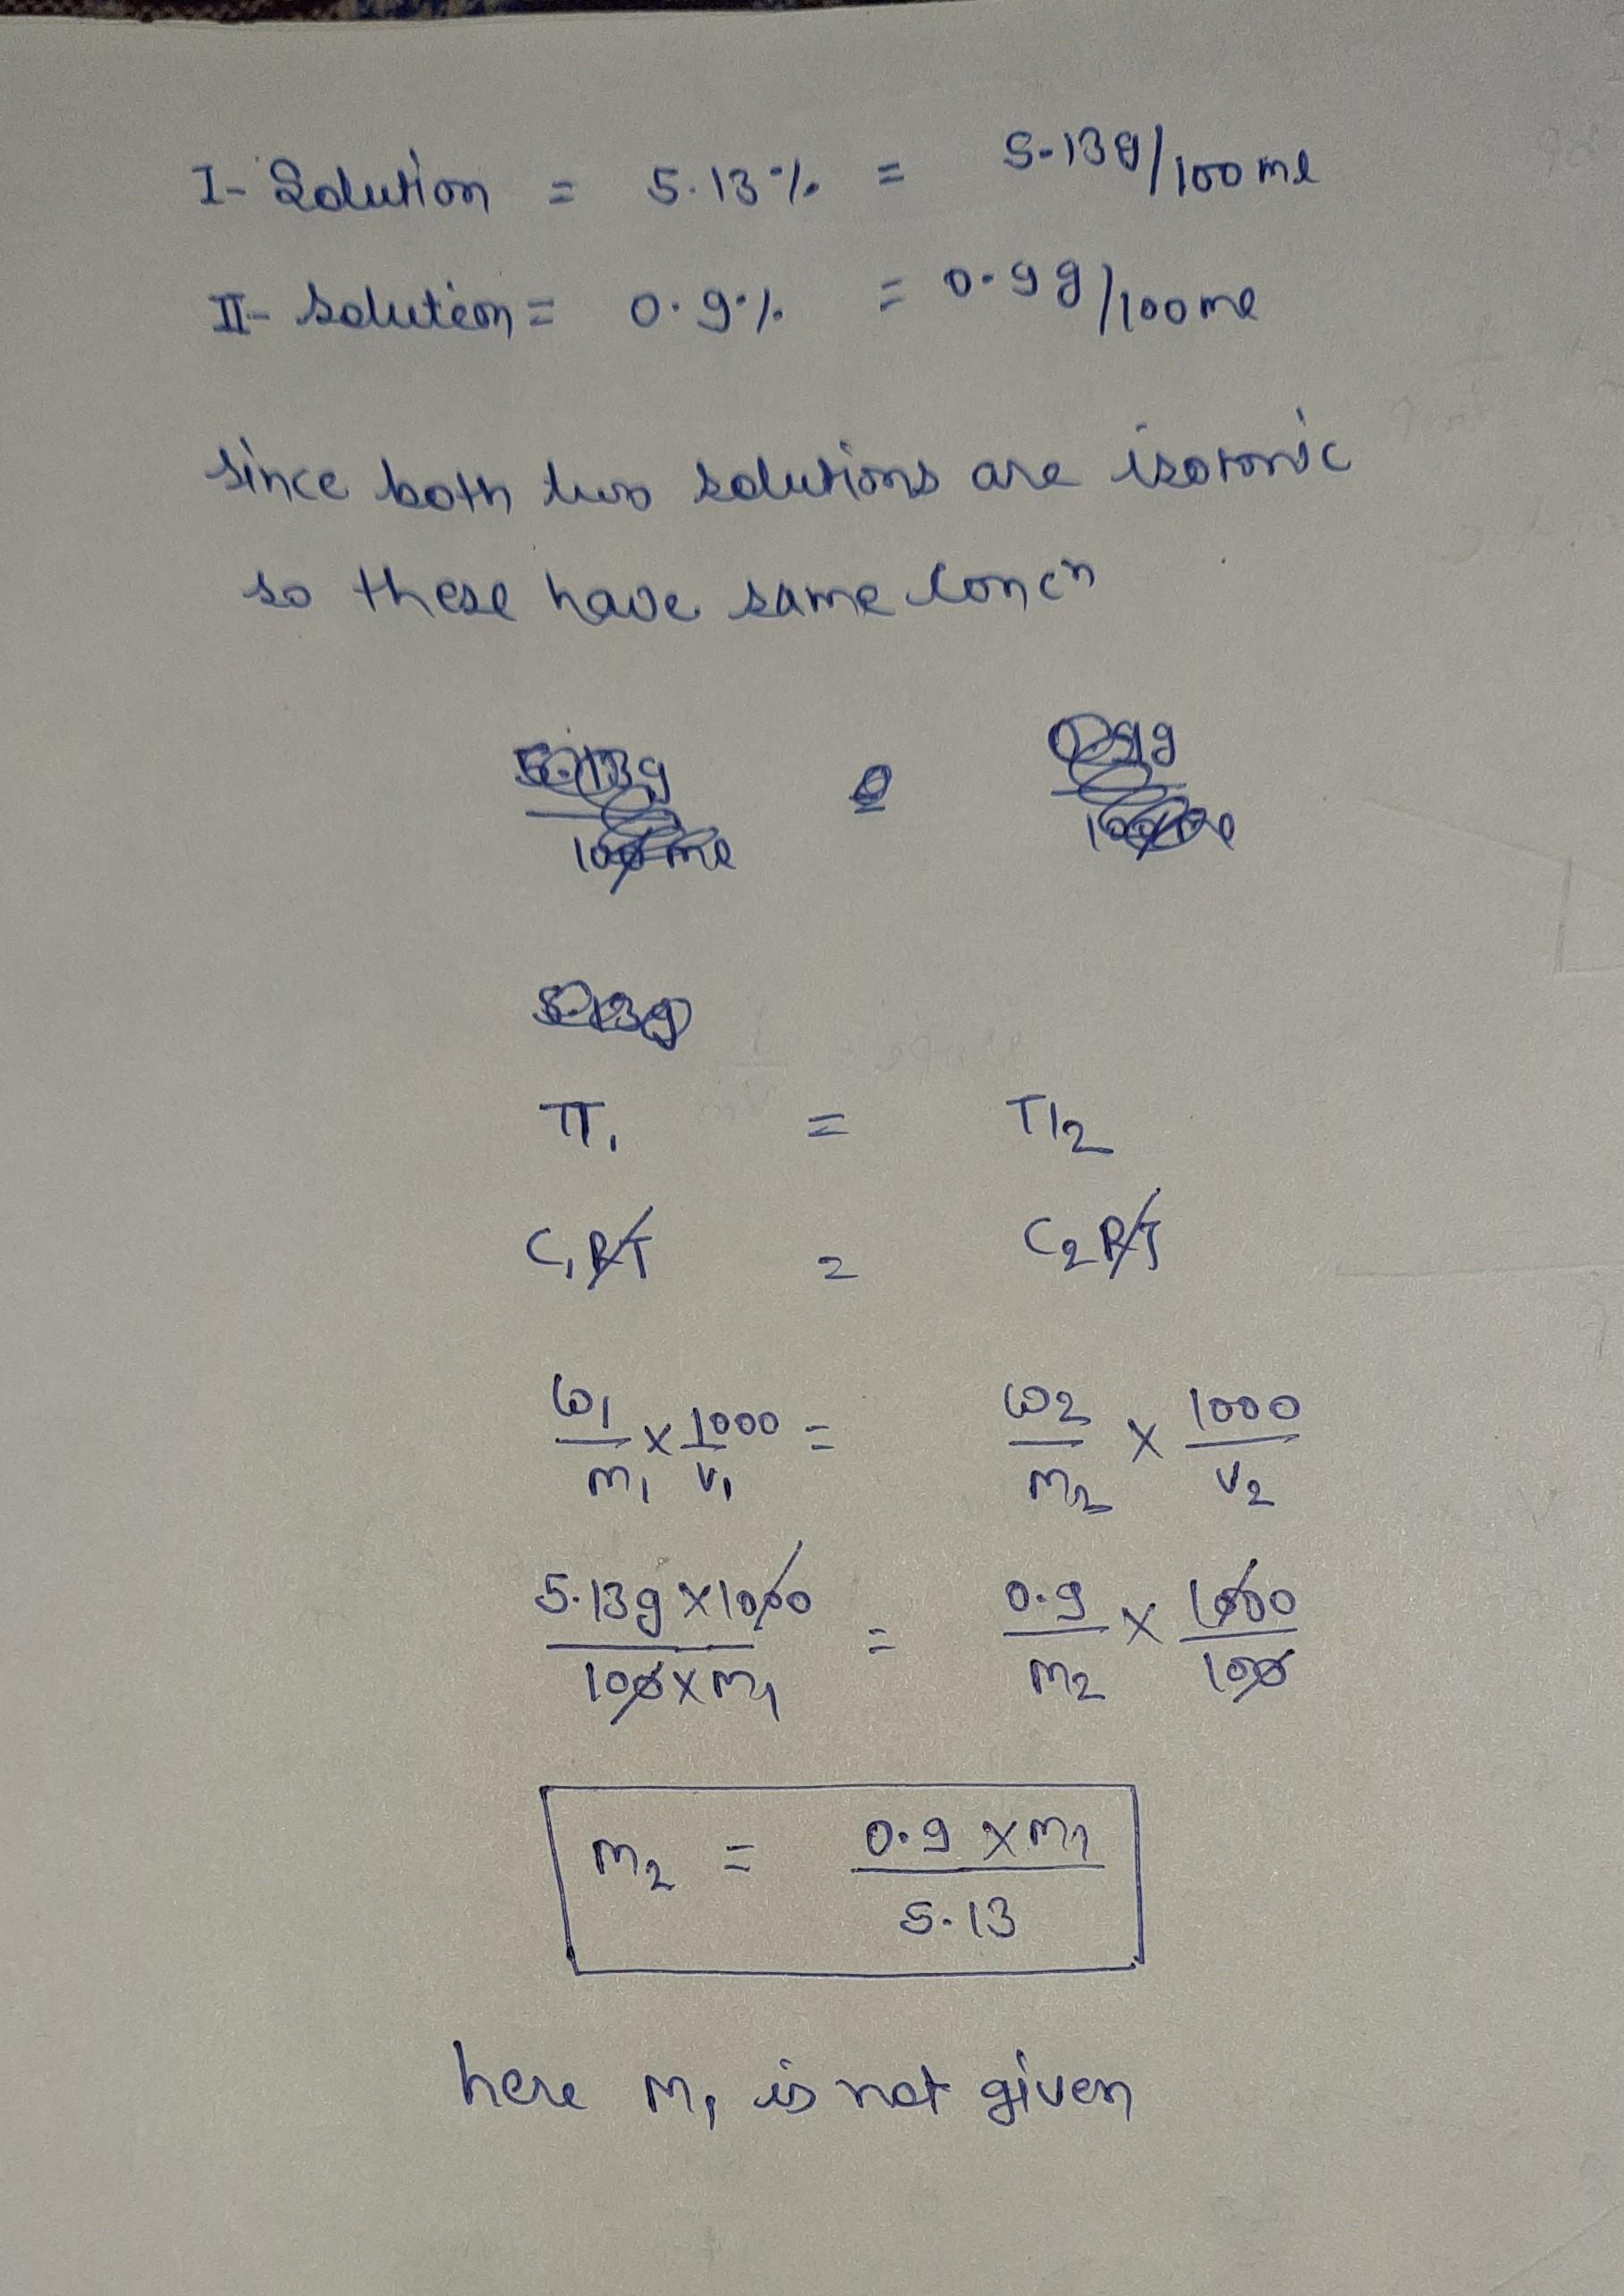 I- Solution = 5.13% = 5.13g/100ml
II- Solution = 0.9% = 0.9g/100ml
since both two solutions are isotonic
so these have same concn
5.13g/100ml = 0.9g/100ml
5.13g
π1 = π2
C1RT = C2RT
w1/m1 × 1000/v1 = w2/m2 × 1000/v2
5.13g × 1000/100 × m1 = 0.9/m2 × 1000/100
m2 = 0.9 × m1/5.13
here m1 is not given